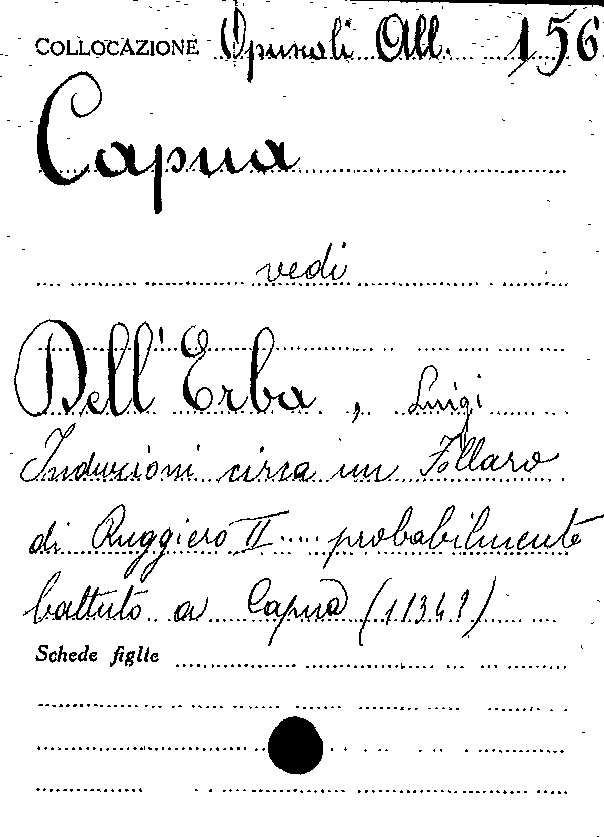 COLLOCAZIONE Opuscoli All. 156
Capua
vedi
Dell'Erba, Luigi
Induzioni circa un Follaro
di Ruggiero II .... probabilmente
battuto a Capua (1134?)
Schede figlie